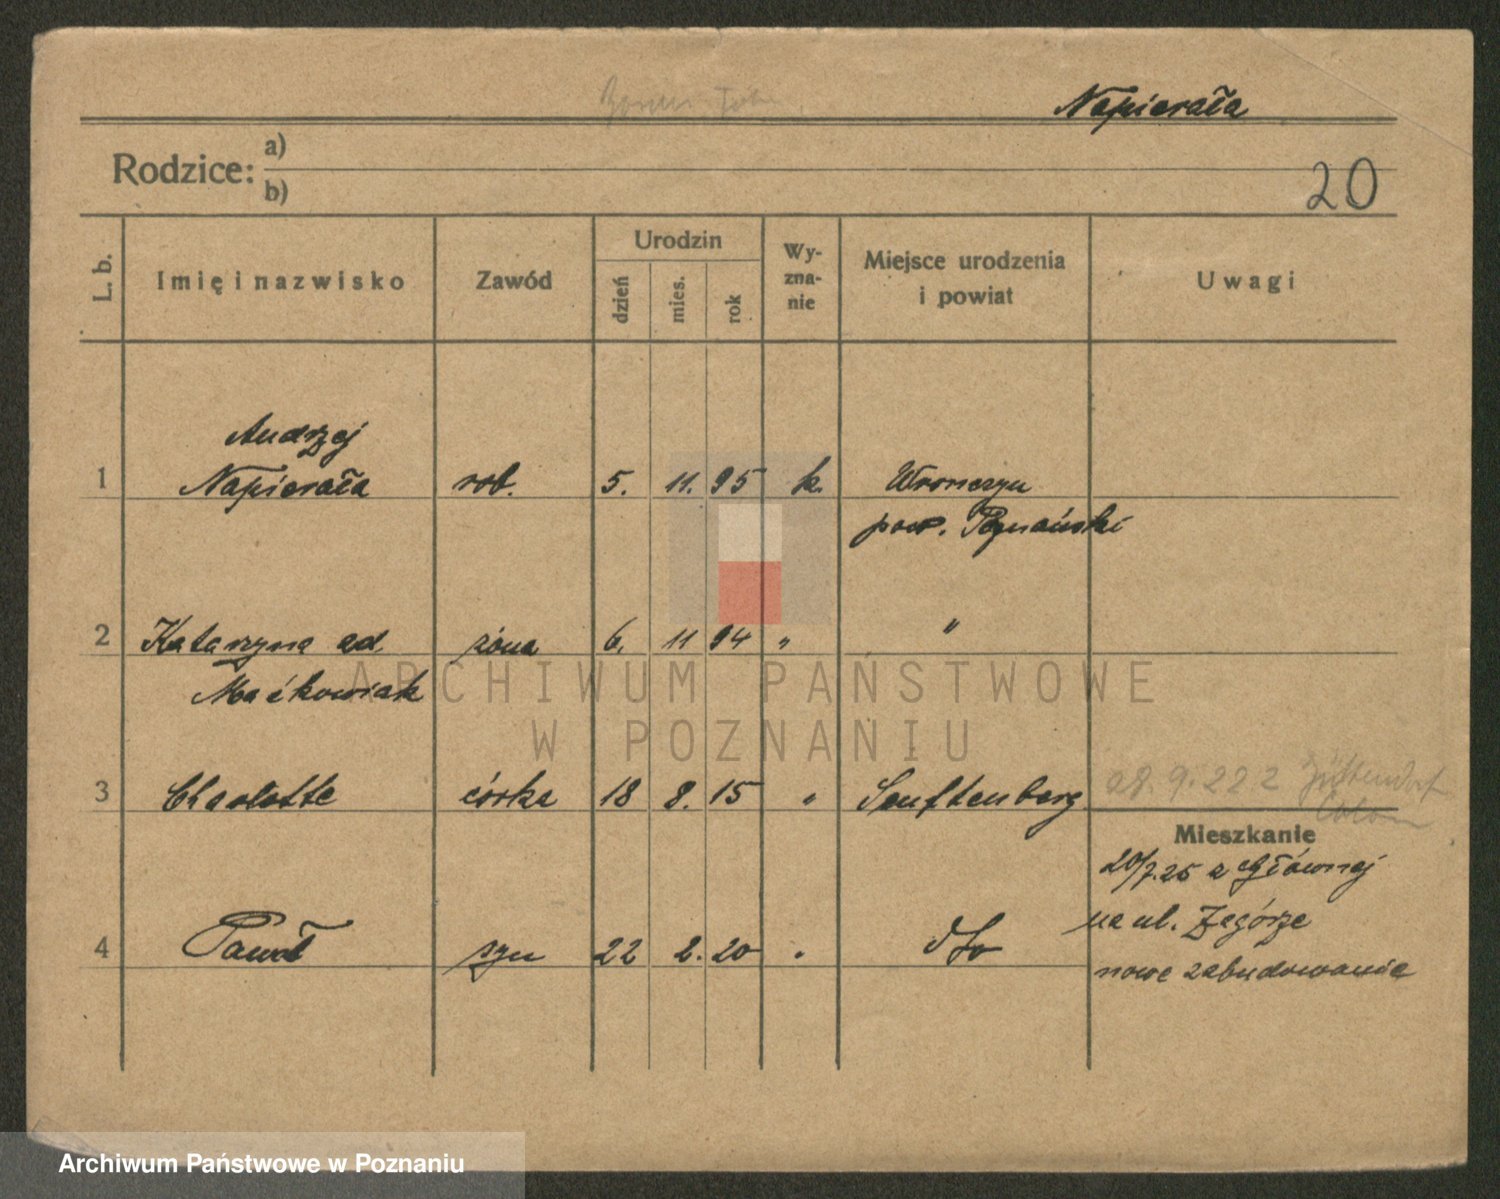 Napierała
Rodzice:
a)
b)
20
L. b.
Imię i nazwisko
Zawód
Urodzin
dzień
mies.
rok
Wy-
zna-
nie
Miejsce urodzenia
i powiat
Uwagi
Andrzej
1 Napierała rob. 5. 11. 95 k. Wronczyn
pow. Poznański
2 Katarzyna od żona 6. 11 94 " "
Maćkowiak
3 Charlotte córka 18 8. 15 " Senftenberg
28. 9. 22 2
Mieszkanie
20/7.25 z Głównej
na ul. Zagórze
4 Paweł syn 22 2. 20 " dto
nowe zabudowanie
ARCHIWUM PAŃSTWOWE
W POZNANIU
Archiwum Państwowe w Poznaniu